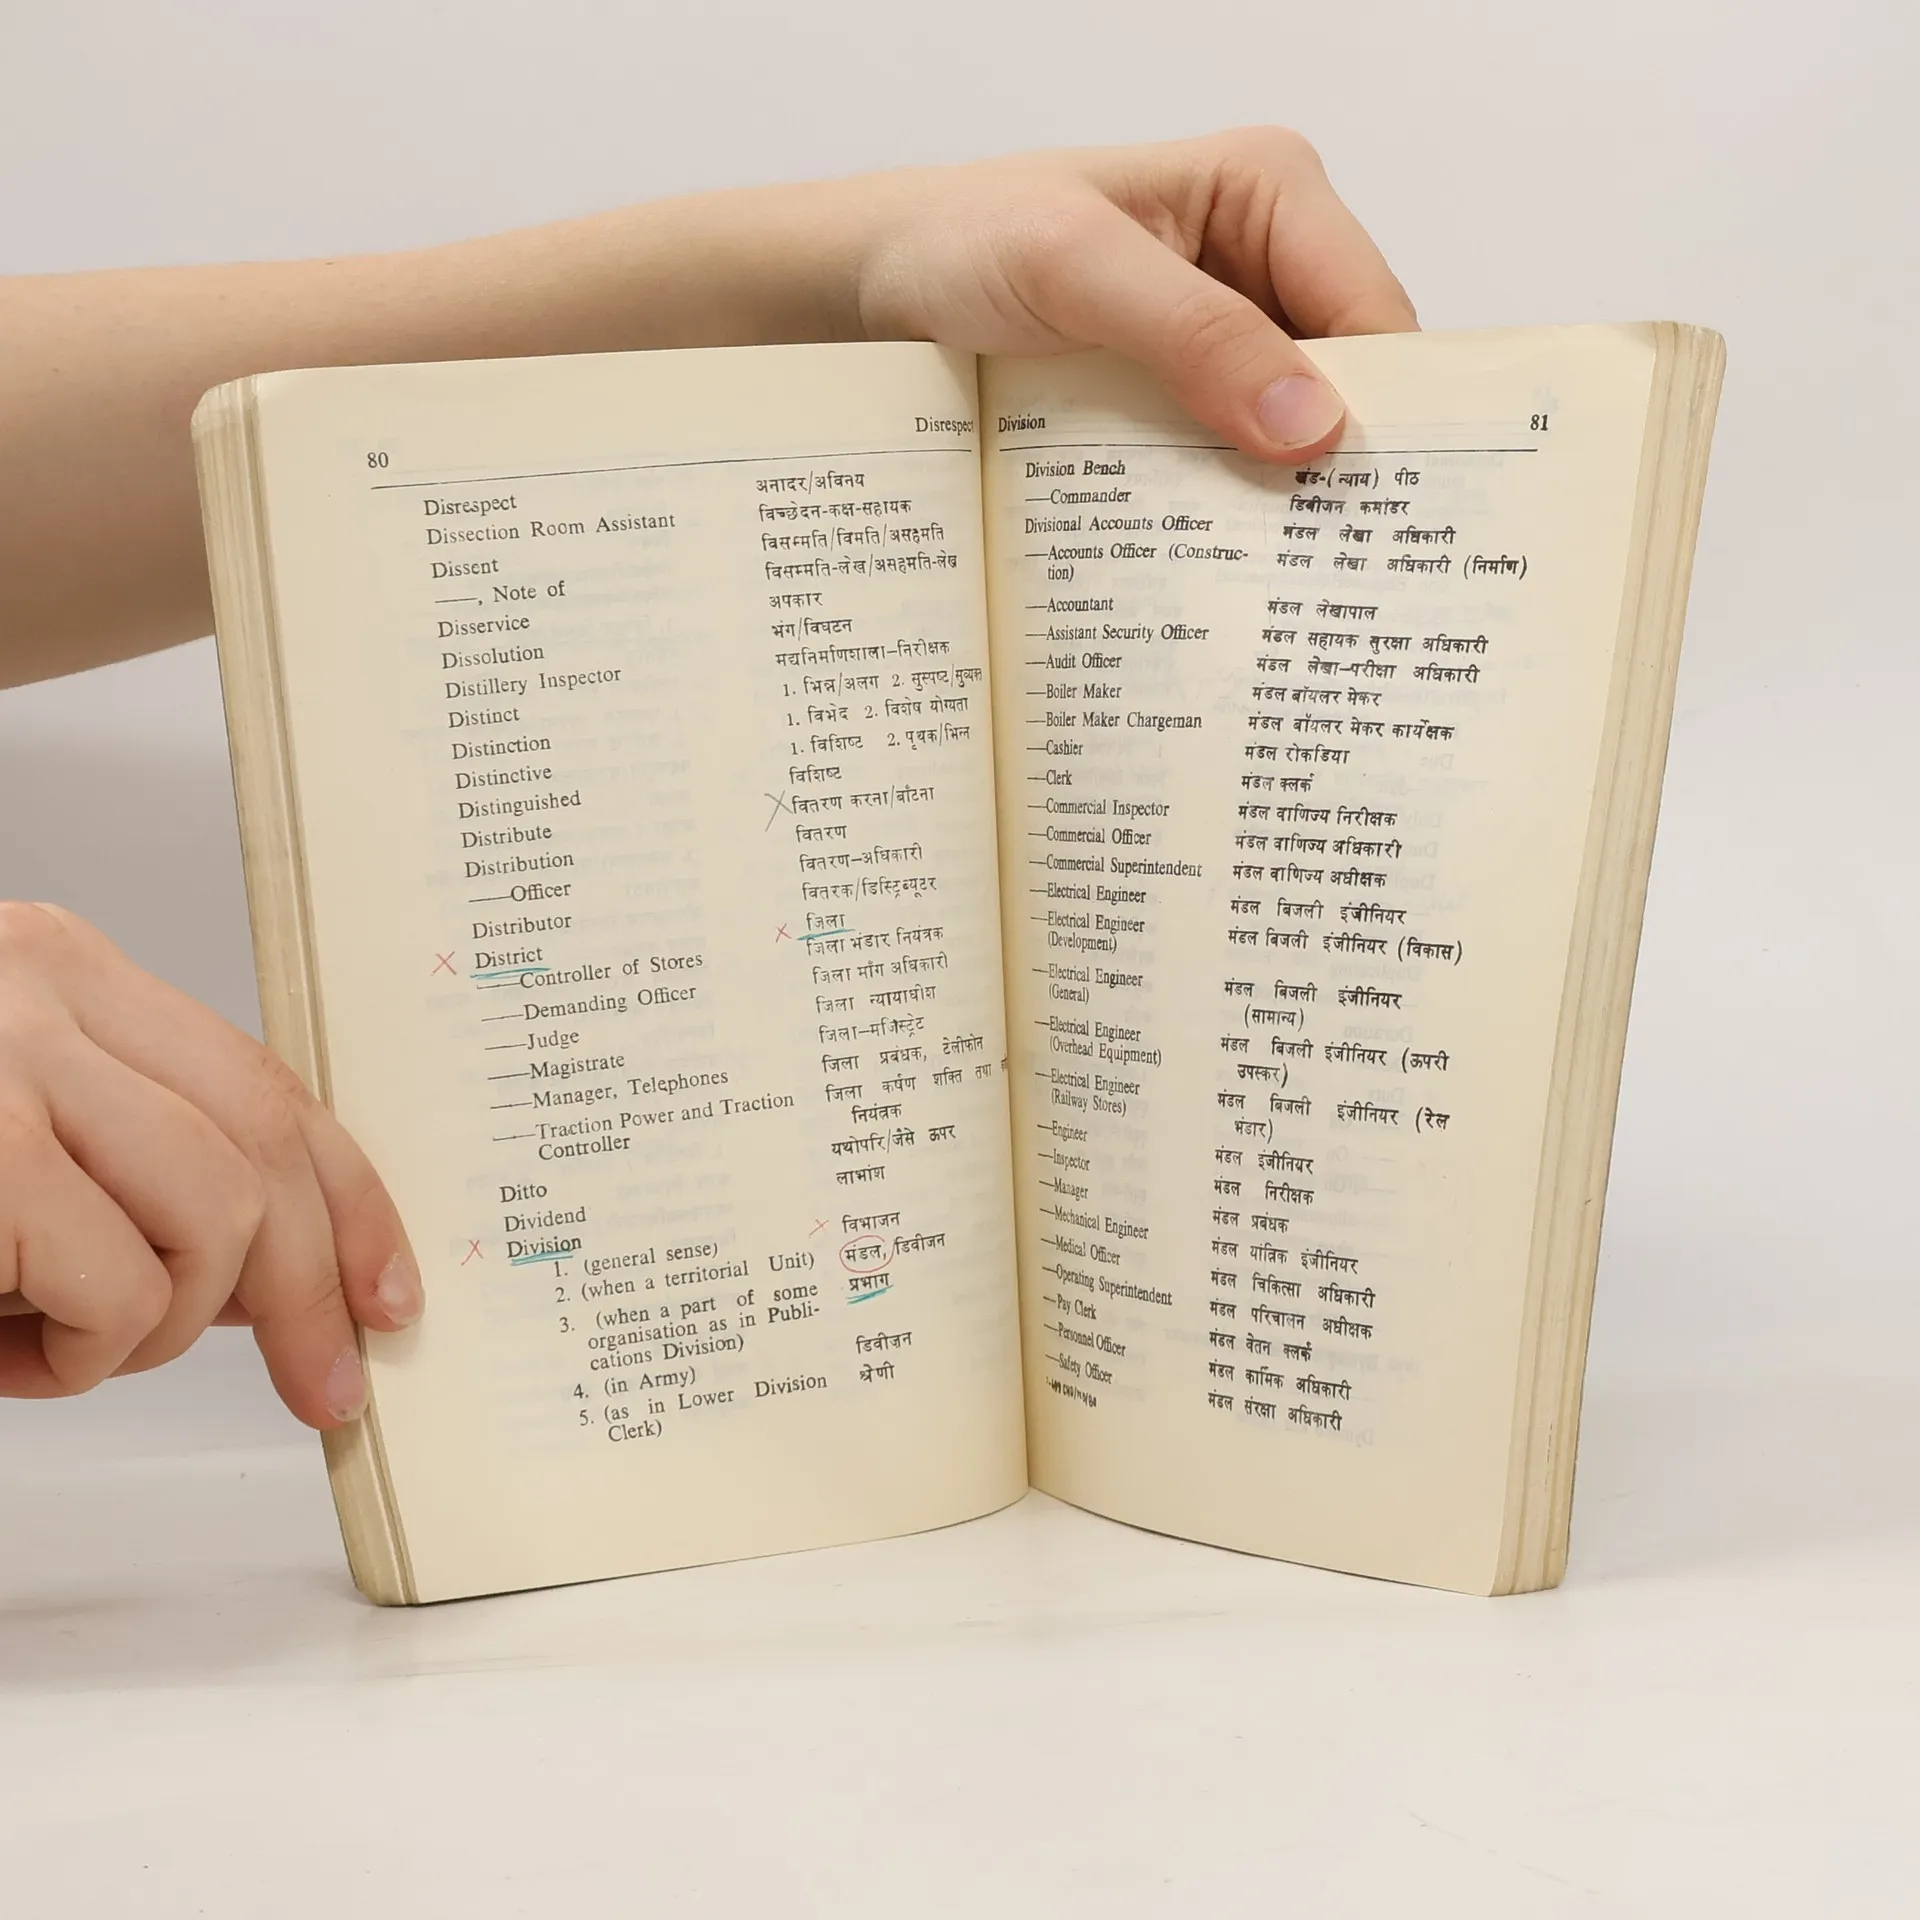 80
Disrespect
Disrespect अनादर/अविनय
Dissection Room Assistant विच्छेदन-कक्ष-सहायक
Dissent विसम्मति/विमति/असहमति
——, Note of विसम्मति-लेख/असहमति-लेख
Disservice अपकार
Dissolution भंग/विघटन
Distillery Inspector मद्यनिर्माणशाला–निरीक्षक
Distinct 1. भिन्न/अलग 2. सुस्पष्ट/सुव्यक्त
Distinction 1. विभेद 2. विशेष योग्यता
Distinctive 1. विशिष्ट 2. पृथक/भिन्न
Distinguished विशिष्ट
Distribute वितरण करना/बाँटना
Distribution वितरण
——Officer वितरण–अधिकारी
Distributor वितरक/डिस्ट्रिब्यूटर
District जिला
——Controller of Stores जिला भंडार नियंत्रक
——Demanding Officer जिला माँग अधिकारी
——Judge जिला न्यायाधीश
——Magistrate जिला–मजिस्ट्रेट
——Manager, Telephones जिला प्रबंधक, टेलीफोन
——Traction Power and Traction जिला कर्षण शक्ति तथा
Controller नियंत्रक
Ditto यथोपरि/जैसे ऊपर
Dividend लाभांश
Division
1. (general sense) विभाजन
2. (when a territorial Unit) मंडल, डिवीजन
3. (when a part of some प्रभाग
organisation as in Publi-
cations Division)
4. (in Army) डिवीज़न
5. (as in Lower Division श्रेणी
Clerk)
Division
81
Division Bench खंड-(न्याय) पीठ
——Commander डिवीजन कमांडर
Divisional Accounts Officer मंडल लेखा अधिकारी
——Accounts Officer (Construc- मंडल लेखा अधिकारी (निर्माण)
tion)
——Accountant मंडल लेखापाल
——Assistant Security Officer मंडल सहायक सुरक्षा अधिकारी
——Audit Officer मंडल लेखा–परीक्षा अधिकारी
——Boiler Maker मंडल बॉयलर मेकर
——Boiler Maker Chargeman मंडल बॉयलर मेकर कार्येक्षक
——Cashier मंडल रोकडिया
——Clerk मंडल क्लर्क
——Commercial Inspector मंडल वाणिज्य निरीक्षक
——Commercial Officer मंडल वाणिज्य अधिकारी
——Commercial Superintendent मंडल वाणिज्य अधीक्षक
——Electrical Engineer मंडल बिजली इंजीनियर
——Electrical Engineer मंडल बिजली इंजीनियर (विकास)
(Development)
——Electrical Engineer मंडल बिजली इंजीनियर
(General) (सामान्य)
——Electrical Engineer मंडल बिजली इंजीनियर (ऊपरी
(Overhead Equipment) उपस्कर)
——Electrical Engineer मंडल बिजली इंजीनियर (रेल
(Railway Stores) भंडार)
——Engineer मंडल इंजीनियर
——Inspector मंडल निरीक्षक
——Manager मंडल प्रबंधक
——Mechanical Engineer मंडल यांत्रिक इंजीनियर
——Medical Officer मंडल चिकित्सा अधिकारी
——Operating Superintendent मंडल परिचालन अधीक्षक
——Pay Clerk मंडल वेतन क्लर्क
——Personnel Officer मंडल कार्मिक अधिकारी
——Safety Officer मंडल संरक्षा अधिकारी